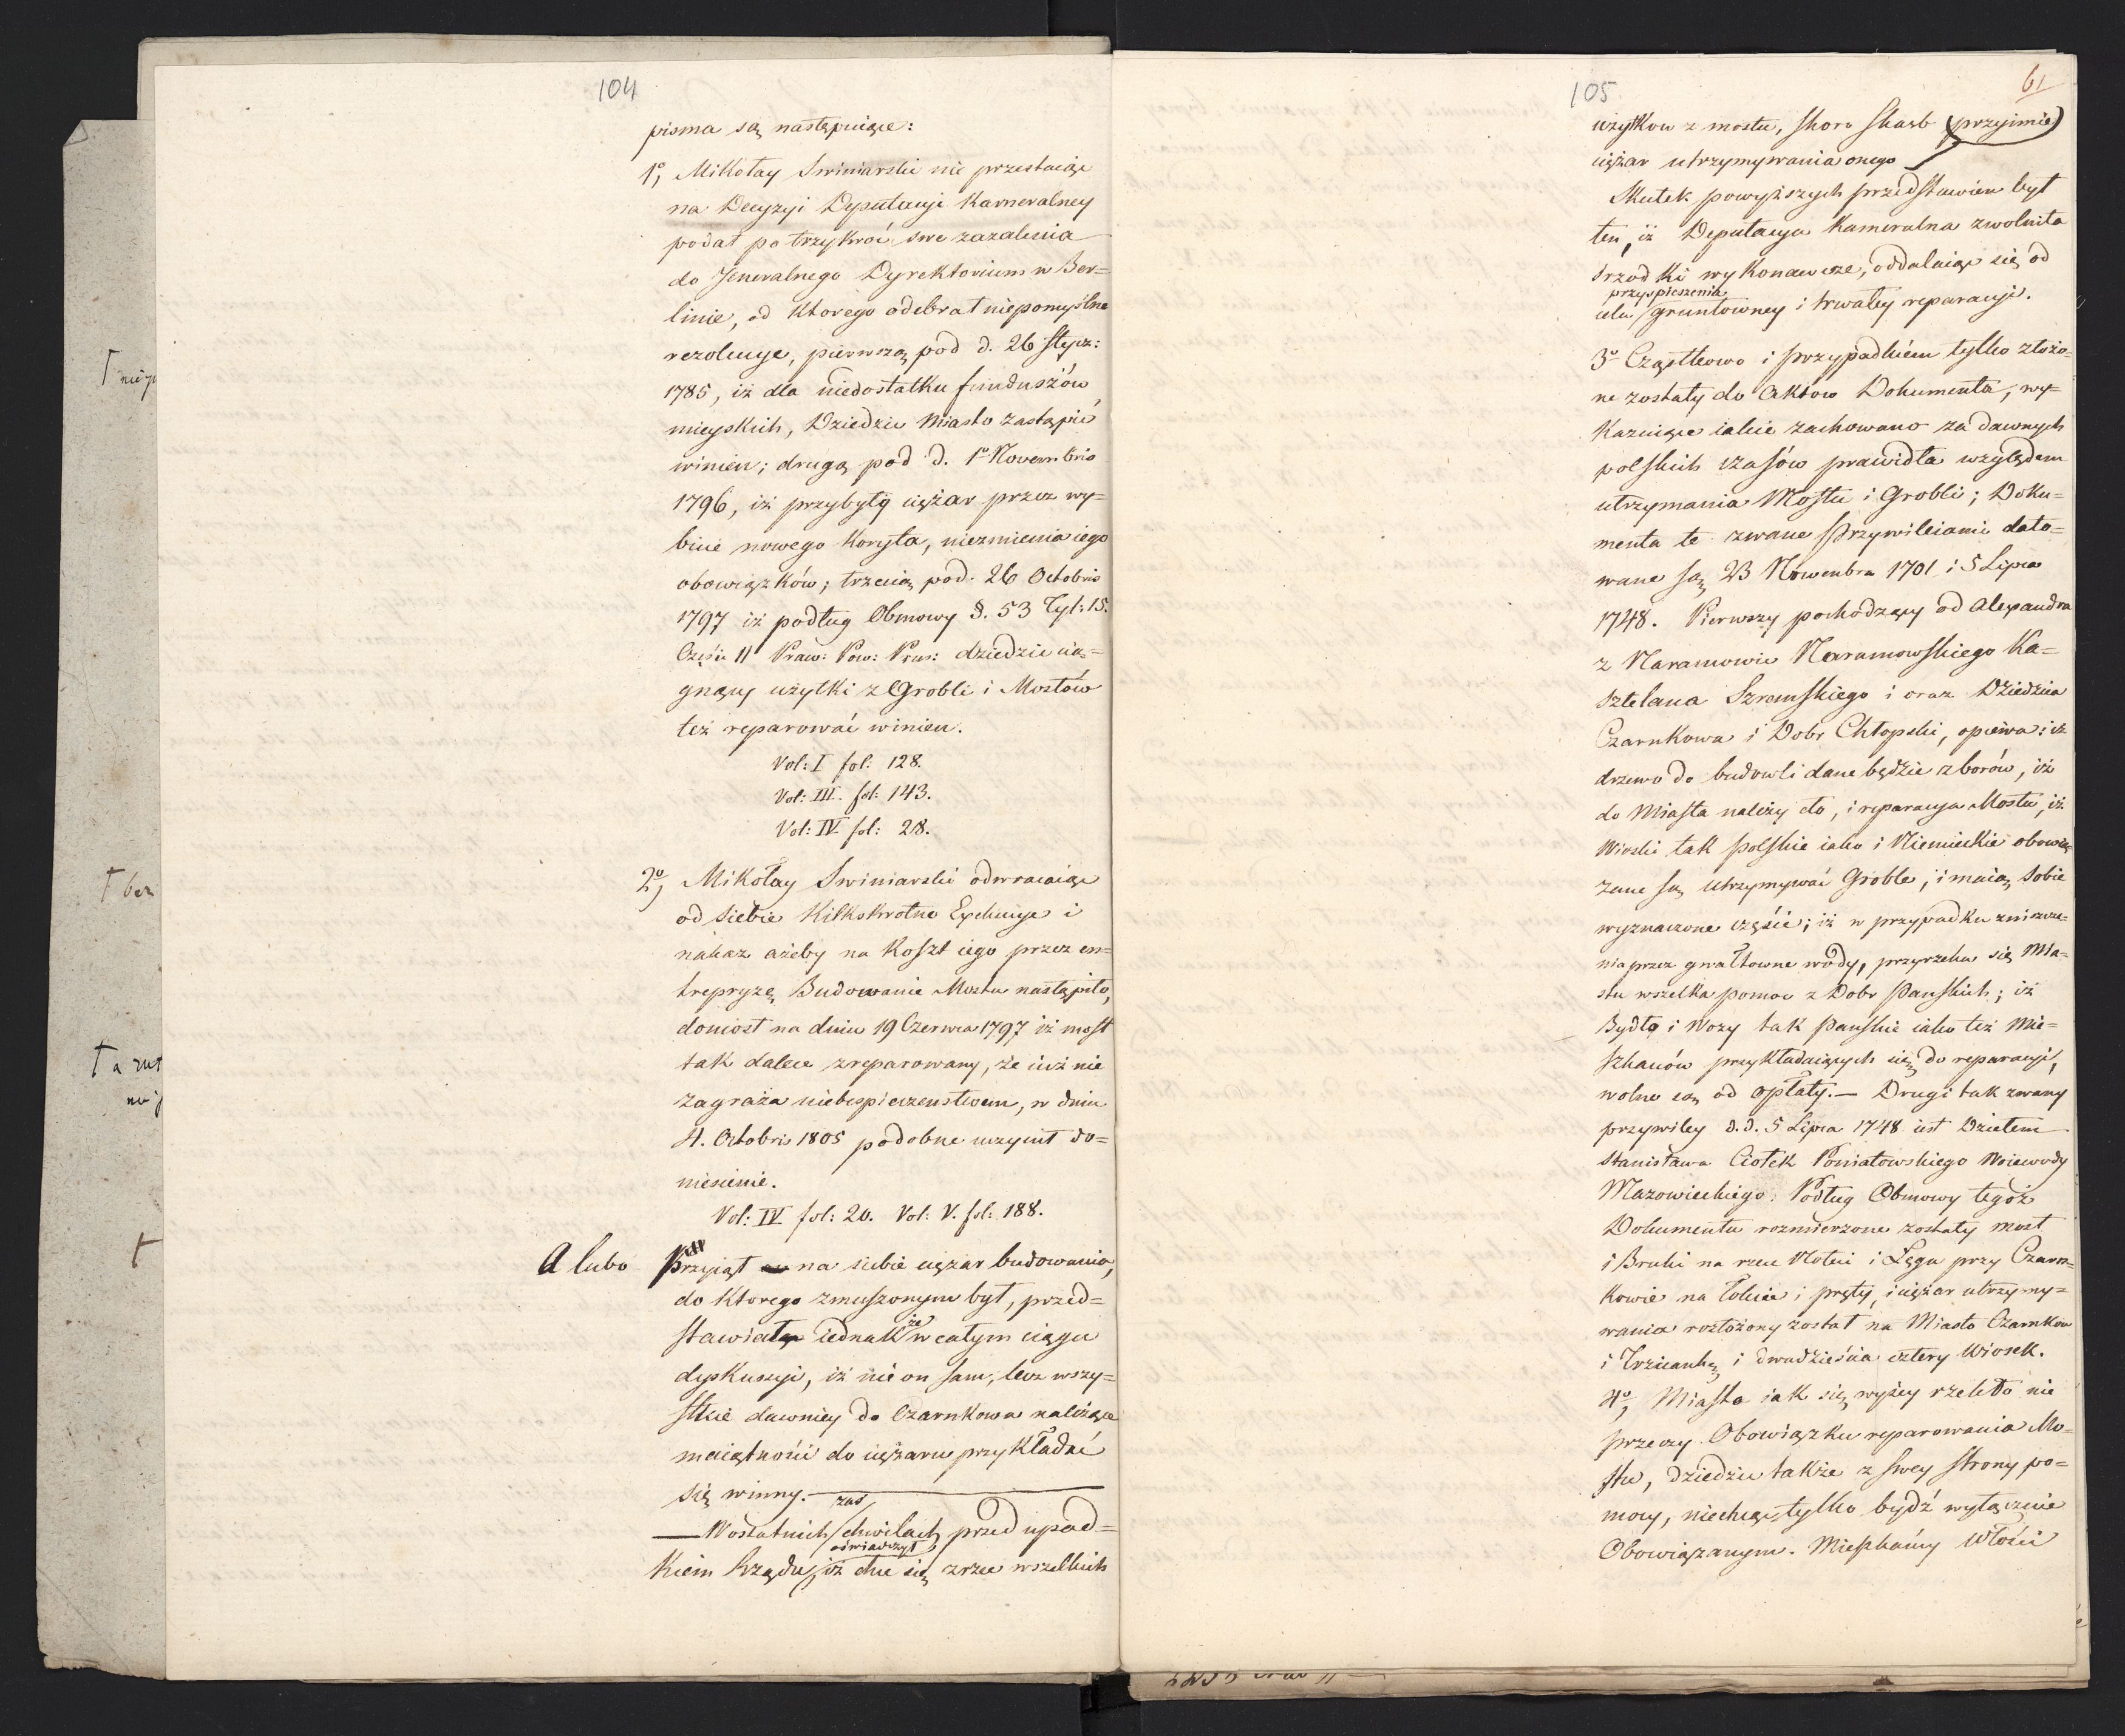 104
pisma są następuiące:
1º, Mikołay Swiniarski nie przestaiąc
na Decyzyi Deputacyi Kameralney
podał po trzykroć swe zazalenia
do Jeneralnego Dyrektorium w Ber=
linie, od ktorego odebrał niepomyślne
rezolucye, pierwszą pod d. 26 Stycz:
1785, iż dla niedostatku funduszów
mieyskich, Dziedzic Miasto zastąpić
winien; drugą pod d. 1º Novembris
1796, iż przybyły ciężar przez wy=
bicie nowego Koryta, niezmienia iego
obowiązków; trzecią pod. 26 Octobris
1797 iż podług Obmowy §. 53 Tyt: 15.
Części II Praw: Pow: Prus: dziedzic cią=
gnący użytki z Grobli i Mostów
też reparować winien.
Vol: I fol: 128.
Vol: III. fol: 143.
Vol: IV. fol: 28.
2º, Mikołay Swiniarski odwracaiąc
od siebie kilkokrotne Exekucye i
nakaz ażeby na koszt iego przez en=
trepryzę Budowanie Mostu nastąpiło,
doniosł na dniu 19 Czerwca 1797 iż most
tak dalece zreparowany, że iuż nie
zagraża niebespieczenstwem, w dniu
4. Octobris 1805 podobne uczynił do=
niesienie.
Vol: IV. fol: 20. Vol: V. fol: 188.
A lubo Przyiął na siebie ciężar budowania,
do ktorego zmuszonym był, przed=
stawiał iednakże w całym ciągu
dyskussyi, iż nie on sam, lecz wszy=
stkie dawniey do Czarnkowa należące
maiętności do ciężaru przykładać
się winny.
zas
W ostatnich chwilach przed upad=
oświadczył
kiem Rządu, iż chce się zrzec wszelkich
105
61
użytkow z mostu, skoro Skarb (przyimie)
ciężar utrzymywania onego
Skutek powyższych przedstawien był
ten, iż Deputacya Kameralna zwolniła
srzodki wykonawcze, oddalaiąc się od
przyspieszenia
celu gruntowney i trwałey reparacyi.
3º Cząstkowo i przypadkiem tylko złożo=
ne zostały do Aktów Dokumenta, wy=
kazuiące iakie zachowano za dawnych
polskich czasów prawidła względem
utrzymania Mostu i Grobli; Doku=
menta te zwane Przywileiami dato=
wane są 23 Nowembra 1701 i 5 Lipca
1748. Pierwszy pochodzący od Alexandra
z Naramowic Naramowskiego Ka=
sztelana Szremskiego i oraz Dziedzica
Czarnkowa i Dobr Chłopski, opiewa: iż
drzewo do budowli dane będzie z borów, iż
do Miasta należy cło, i reparacya Mostu, iż
Wioski tak polskie iako i Niemieckie obowią
zane są utrzymywać Groble, i maią sobie
wyznaczone częście; iż w przypadku zniszcze=
nia przez gwałtowne wody, przyrzeka się Mia=
stu wszelka pomoc z Dobr Pańskich; iż
Bydło i Wozy tak Pańskie iako też Mie=
szkanów przykładaiących się do reparacyi,
wolne są od opłaty. — Drugi tak zwany
przywiley d.d. 5 Lipca 1748 iest Dziełem
Stanisława Ciołek Poniatowskiego Woiewody
Mazowieckiego. Podług Obmowy tegoż
Dokumentu rozmierzone zostały most
i Bruki na rzece Noteci i Łęgu przy Czarn=
kowie na łokcie i pręty, i ciężar utrzymy=
wania rozłożony został na Miasto Czarnkow
i Trzciankę i dwadzieścia cztery Wiosek.
4º, Miasto iak się wyżey rzekło nie
przeczy Obowiązku reparowania Mo=
stu, dziedzic także z swey strony po=
mocy, niechcąc tylko bydź wyłącznie
Obowiązanym. Mieszkańcy Włości